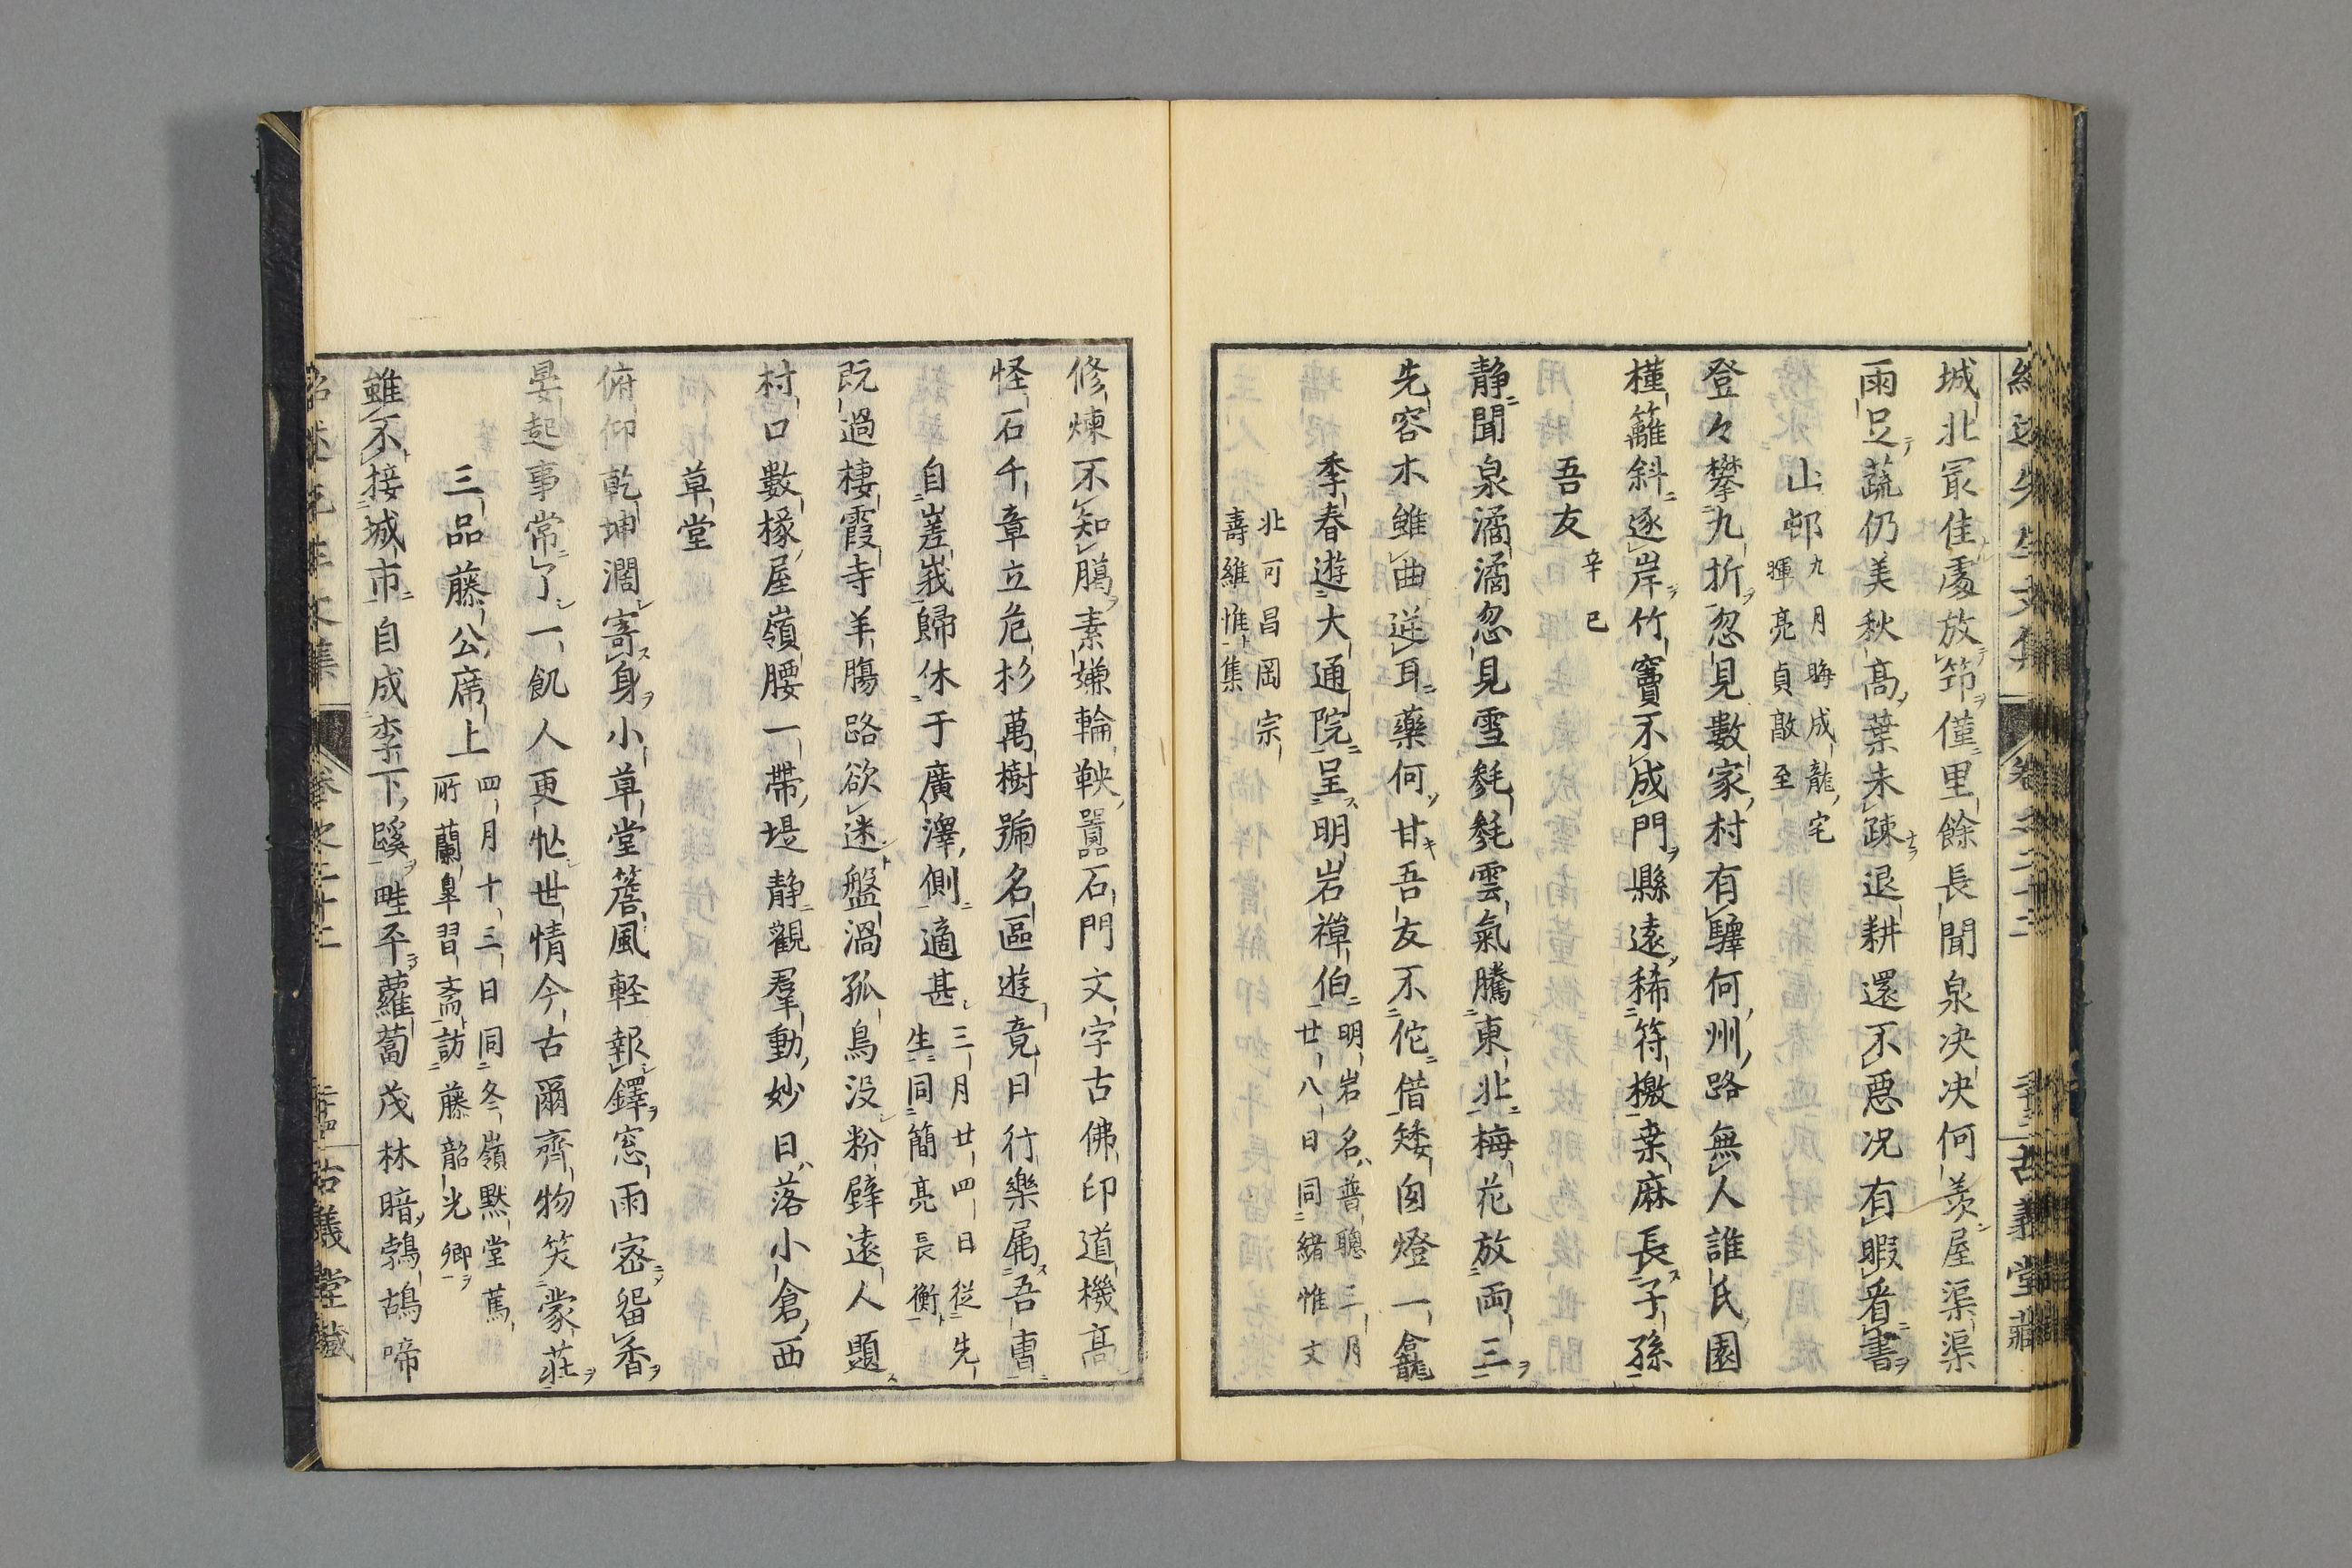 城北冣佳處放筇僅里餘長聞泉决决何羨屋渠渠
雨足蔬仍美秋高葉未疎退耕還不惡况有暇看書
山邨
九月晦成龍宅
暉亮貞敢至
登々攀九折忽見數家村有驛何州路無人誰氏園
槿籬斜逐岸竹竇不成門縣遠稀符檄桒麻長子孫
吾友
辛巳
静聞泉潏潏忽見雪毿毿雲氣騰東北梅花放両三
先容木雖曲逆耳藥何甘吾友不佗借矮囱燈一龕
季春遊大通院呈明岩禅伯
明岩名普聰三月
廿八日同緒惟文
北可昌岡宗
壽維惟集
修煉不知臈素嫌輪鞅囂石門文字古佛印道機高
怪石千章立危杉萬樹號名區遊竟日行樂属吾曹
自嵳峩歸休于廣澤側適甚
三月廿四日従先
生同簡亮長衡
既過棲霞寺羊膓路欲迷盤渦孤鳥没粉壁遠人題
村口數椽屋嶺腰一帶堤静觀羣動妙日落小倉西
草堂
俯仰乾坤濶寄身小草堂簷風軽報鐸窓雨密留香
晏起事常了一飢人更忙世情今古爾齊物笑蒙莊
三品藤公席上
四月十三日同冬嶺黙堂萬
所蘭臯習齋訪藤韶光卿
雖不接城市自成李下蹊畦平蘿蔔茂林暗鵓鴣啼
古義堂藏